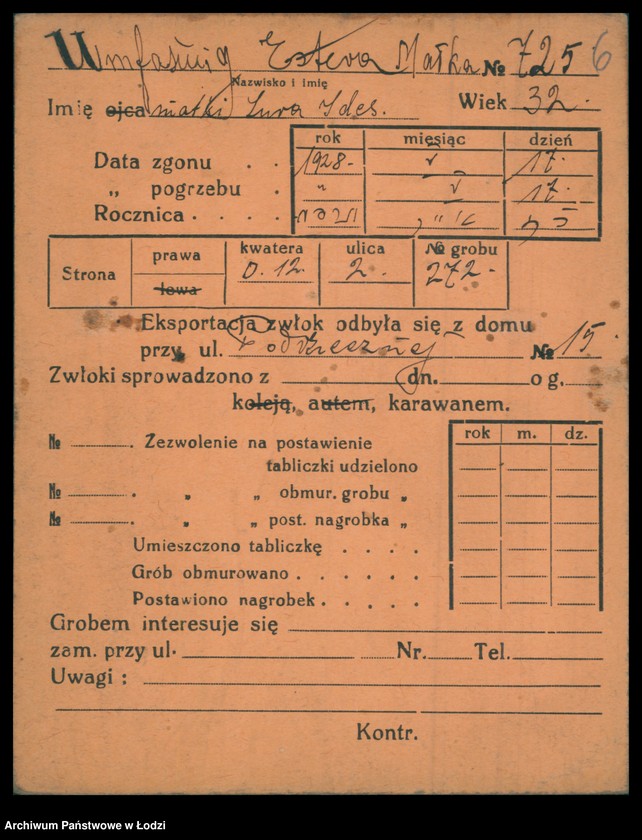 Umfaśnig Estera Małka № 7256
Nazwisko i imię
Imię ojca matki Sura Ides. Wiek 32.
rok miesiąc dzień
Data zgonu . . 1928. V 17.
„ pogrzebu . „ V 17.
Rocznica . . . .
Strona prawa lewa kwatera D. 12. ulica 2. № grobu 272.
Eksportacja zwłok odbyła się z domu
przy ul. Podrzecznej № 15.
Zwłoki sprowadzono z dn. o g.
koleją, autem, karawanem.
№ . Zezwolenie na postawienie rok m. dz.
tabliczki udzielono
№ . „ „ obmur. grobu „
№ . „ „ post. nagrobka „
Umieszczono tabliczkę . . . .
Grób obmurowano . . . . . .
Postawiono nagrobek . . . . .
Grobem interesuje się
zam. przy ul. Nr. Tel.
Uwagi :
Kontr.
Archiwum Państwowe w Łodzi